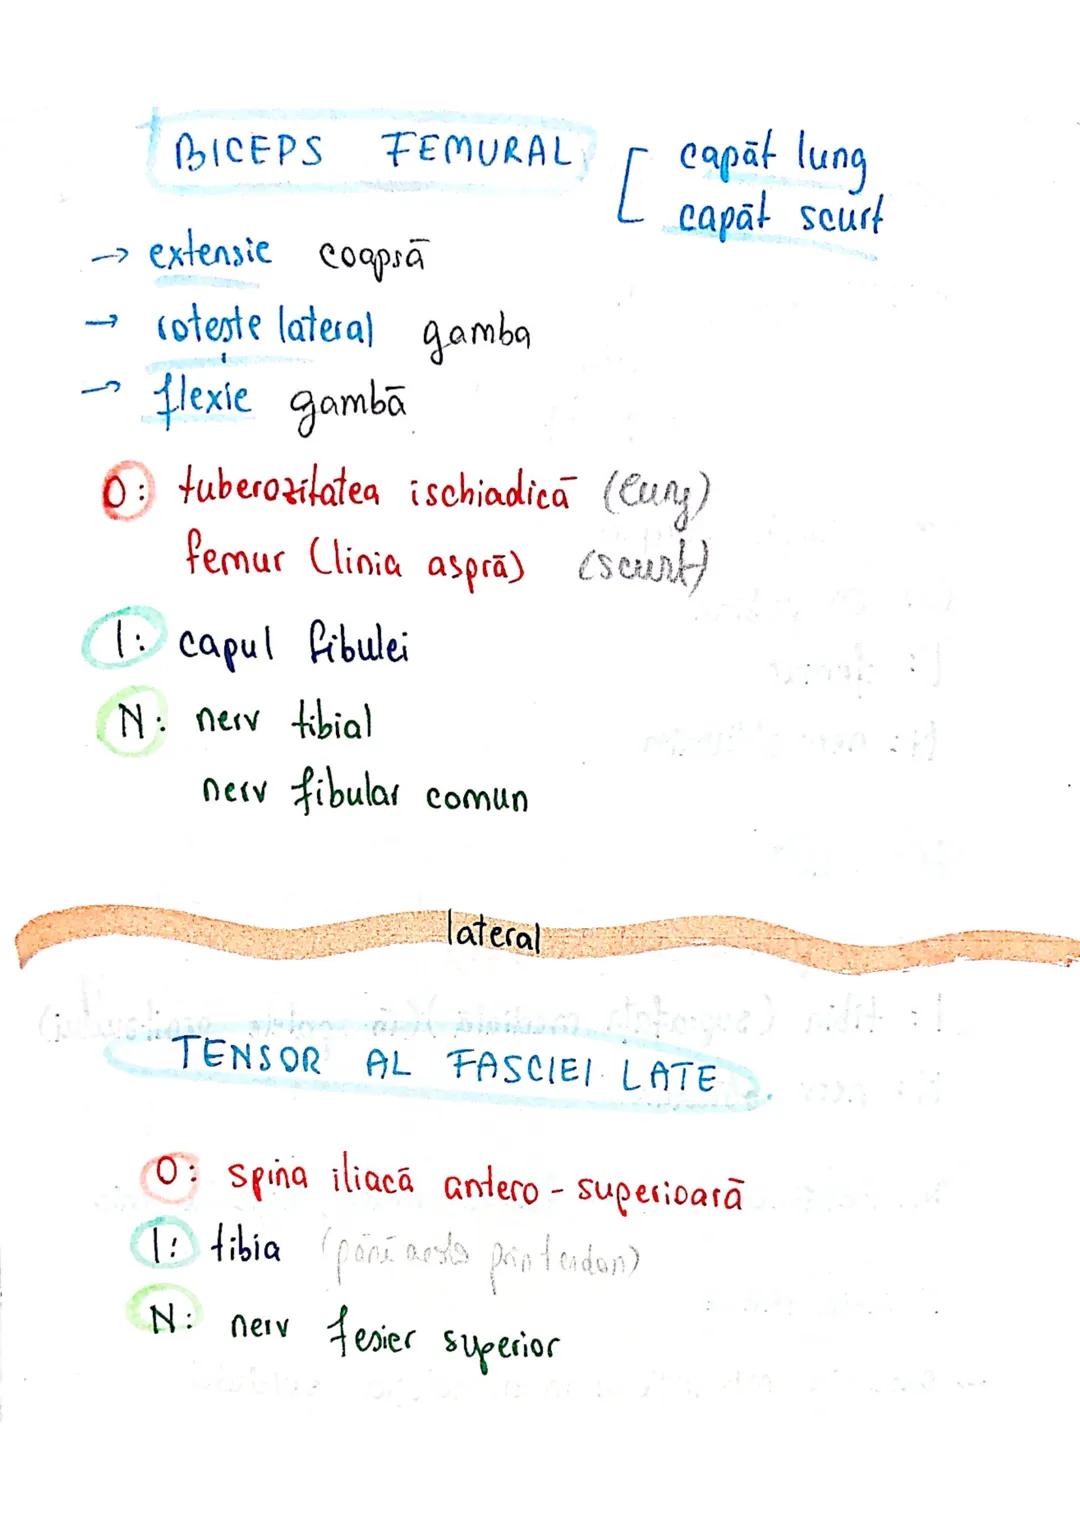 BICEPS FEMURAL [ capăt lung
capăt scurt
→ extensie coapsă
→ rotește lateral gamba
→ flexie gambă
O: tuberozitatea ischiadică (lung)
femur (linia aspră) (scurt)
I: capul fibulei
N: nerv tibial
nerv fibular comun
lateral
TENSOR AL FASCIEI LATE
O: spina iliacă antero-superioară
I: tibia (prin tendon)
N: nerv fesier superior